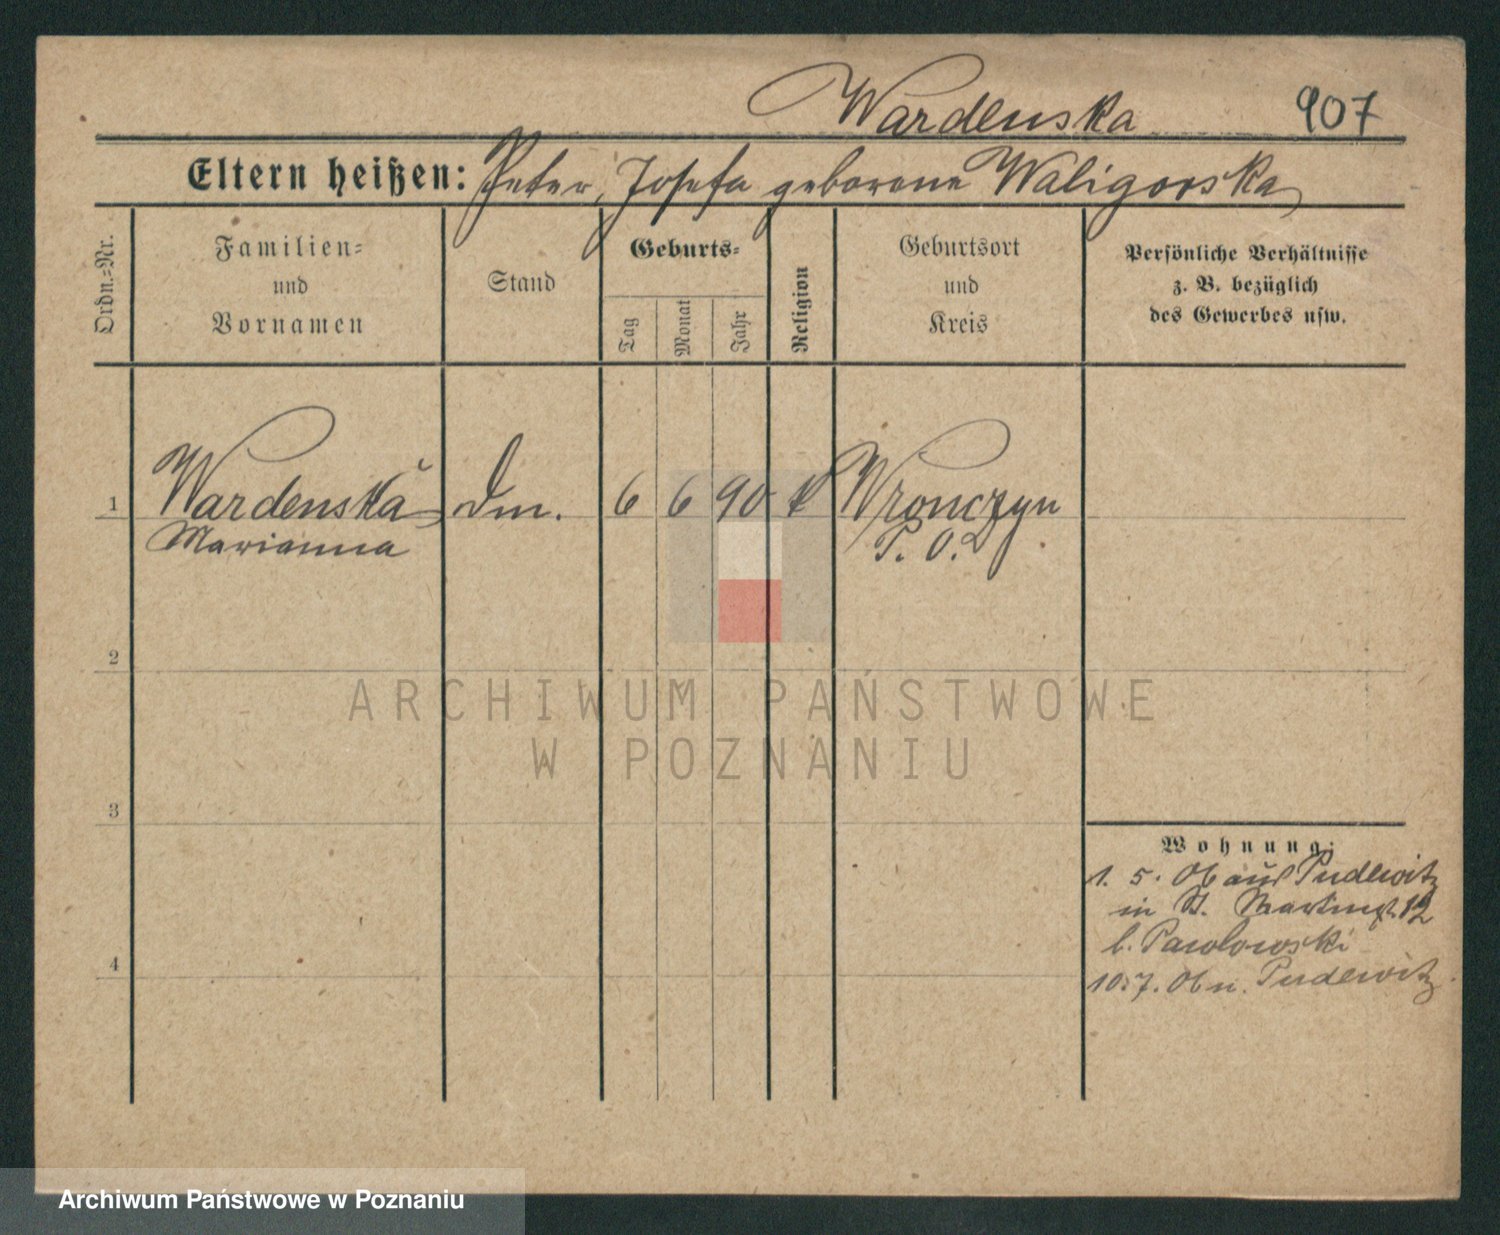 Wardenska 907
Eltern heißen: Peter, Josefa geborene Waligorska
Ordn.=Nr.
Familien=
und
Vornamen
Stand
Geburts=
Tag
Monat
Jahr
Religion
Geburtsort
und
Kreis
Persönliche Verhältnisse
z. B. bezüglich
des Gewerbes usw.
1 Wardenska Dm. 6 6 90 k Wronczyn
Marianna P. O.
2
ARCHIWUM PAŃSTWOWE
W POZNANIU
3
Wohnung:
1. 5. Ob aus Pudewitz
in St. Martinst. 12
b. Pawlowski
4
10.7. Ob n. Pudewitz
Archiwum Państwowe w Poznaniu